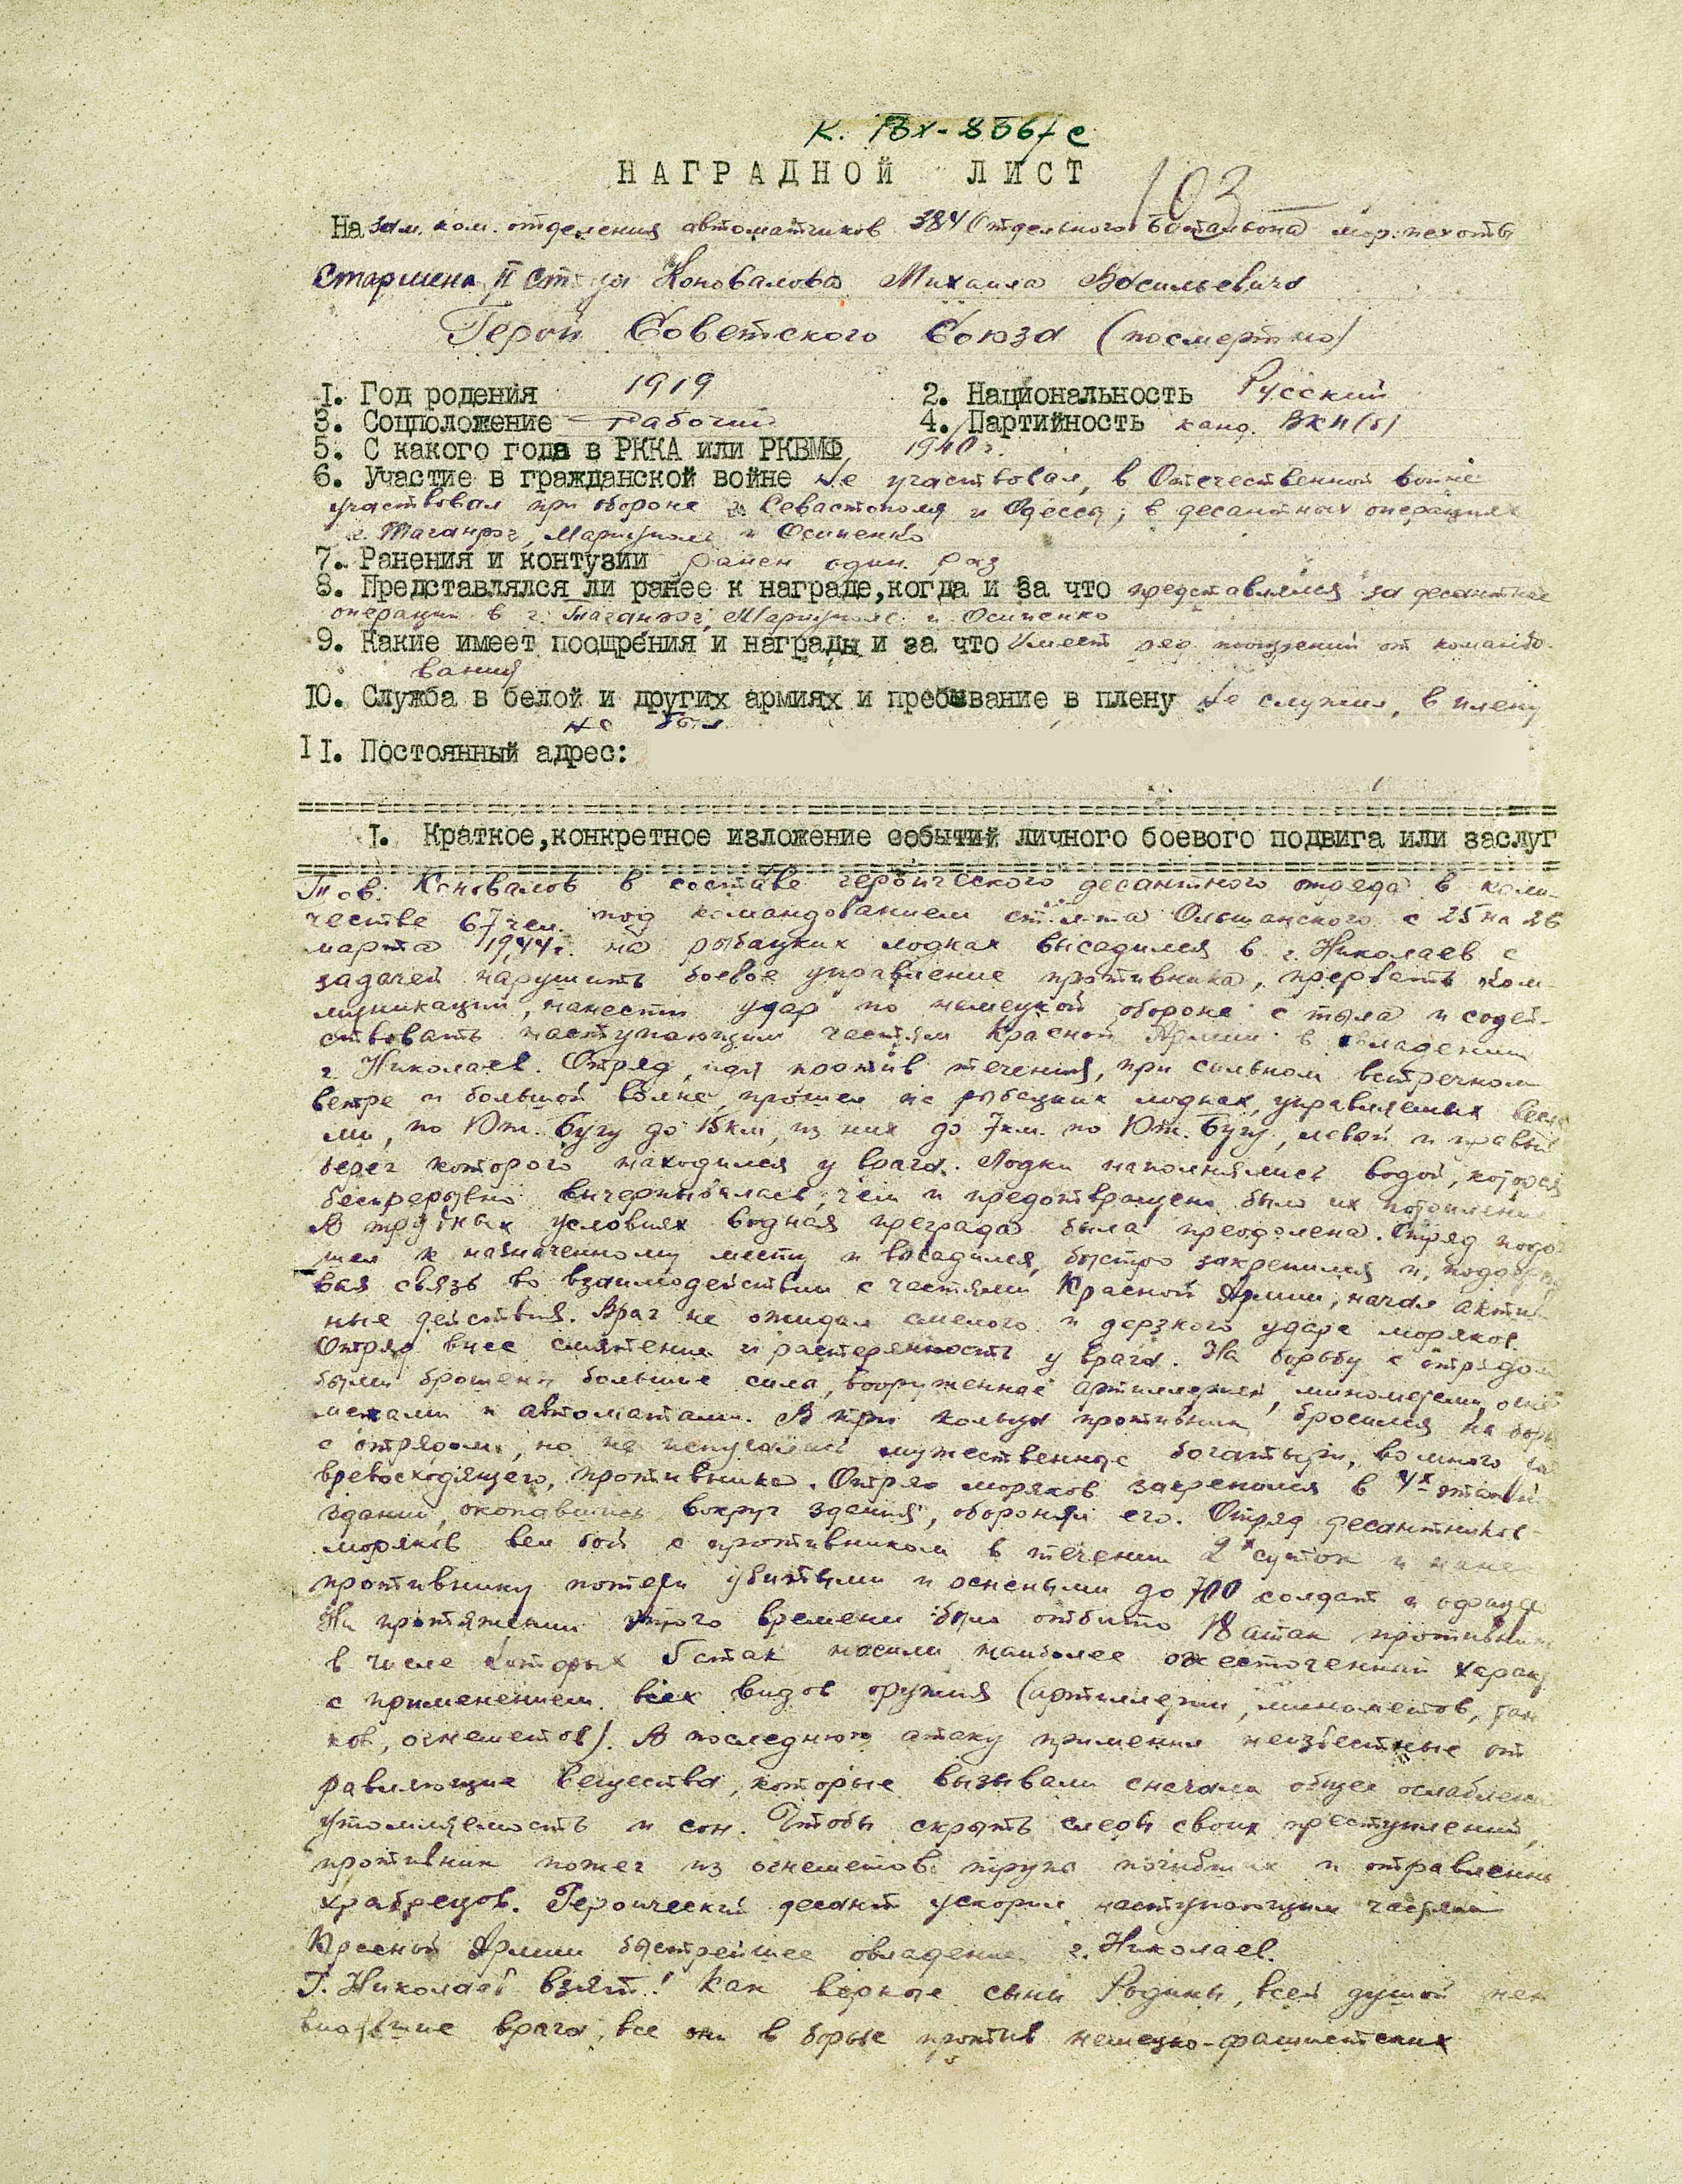 К. Вх-8567с
НАГРАДНОЙ ЛИСТ
103
На зам. ком. отделения автоматчиков 384 Отдельного батальона мор. пехоты
Старшина II Коновалова Михаила Васильевича
Герой Советского Союза (посмертно)
1. Год родения 1919 2. Национальность Русский
3. Соцположение Рабочий 4. Партийность канд. ВКП(б)
5. С какого года в РККА или РКВМФ 1940 г.
6. Участие в гражданской войне не участвовал, в Отечественной войне
участвовал при обороне г. Севастополя и Одесса; в десантных операциях
г. Таганрог, Мариуполь и Осипенко
7. Ранения и контузии ранен один раз
8. Представлялся ли ранее к награде,когда и за что представлялся за десантные
операции в г. Таганрог, Мариуполь и Осипенко
9. Какие имеет поощрения и награды и за что Имеет ряд поощрений от командо-
вания
10. Служба в белой и других армиях и пребывание в плену не служил, в плену
не был
11. Постоянный адрес:
I. Краткое,конкретное изложение событий личного боевого подвига или заслуг
Тов. Коновалов в составе героического десантного отряда в коли-
честве 67 чел. под командованием ст. л-та Ольшанского с 25 на 26
марта 1944 г. на рыбацких лодках высадился в г. Николаев с
задачей нарушить боевое управление противника, прервать ком-
муникации, нанести удар по немецкой обороне с тыла и содей-
ствовать наступающим частям Красной Армии в овладении
г. Николаев. Отряд, идя против течения, при сильном встречном
ветре и большой волне, прошел на рыбацких лодках, управляемых весла
ми, по Юж. Бугу до 15 км, из них до 7 км. по Юж. Бугу, левый и правый
берег которого находился у врага. Лодки наполнялись водой, которая
беспрерывно вычерпывалась, чем и предотвращено было их потопление
В трудных условиях водная преграда была преодолена. Отряд подо
шел к назначенному месту и высадился, быстро закрепился и,
вая связь во взаимодействии с частями Красной Армии, начал актив-
ные действия. Враг не ожидал смелого и дерзкого удара моряков.
Отряд внес смятение и растерянность у врага. На борьбу с отрядом
были брошены большие силы, вооруженные артиллерией, минометами, огне
метами и автоматами. В три кольца противник бросился на борь
с отрядом, но не испугались мужественные богатыри, во много
превосходящего, противника. Отряд моряков закрепился в 4х этажн
здании, окопавшись вокруг здания, обороняя его. Отряд десантников-
моряков вел бой с противником в течении 2х суток и нанес
противнику потери убитыми и ранеными до 700 солдат и офицер
На протяжении этого времени было отбито 18 атак противника
в числе которых 6 атак носили наиболее ожесточенный харак
с применением всех видов оружия (артиллерии, минометов, тан
ков, огнеметов). В последнюю атаку применил неизвестные от
равляющие вещества, которые вызывали сначала общее ослаблени
утомляемость и сон. Чтобы скрыть следы своих преступлений,
противник пожег из огнеметов трупы погибших и отравленны
храбрецов. Героический десант ускорил наступающим частям
Красной Армии быстрейшее овладение г. Николаев.
Г. Николаев взят! Как верные сыны Родины, всей душой нен
видевшие врага, все они в борьбе против немецко-фашистских